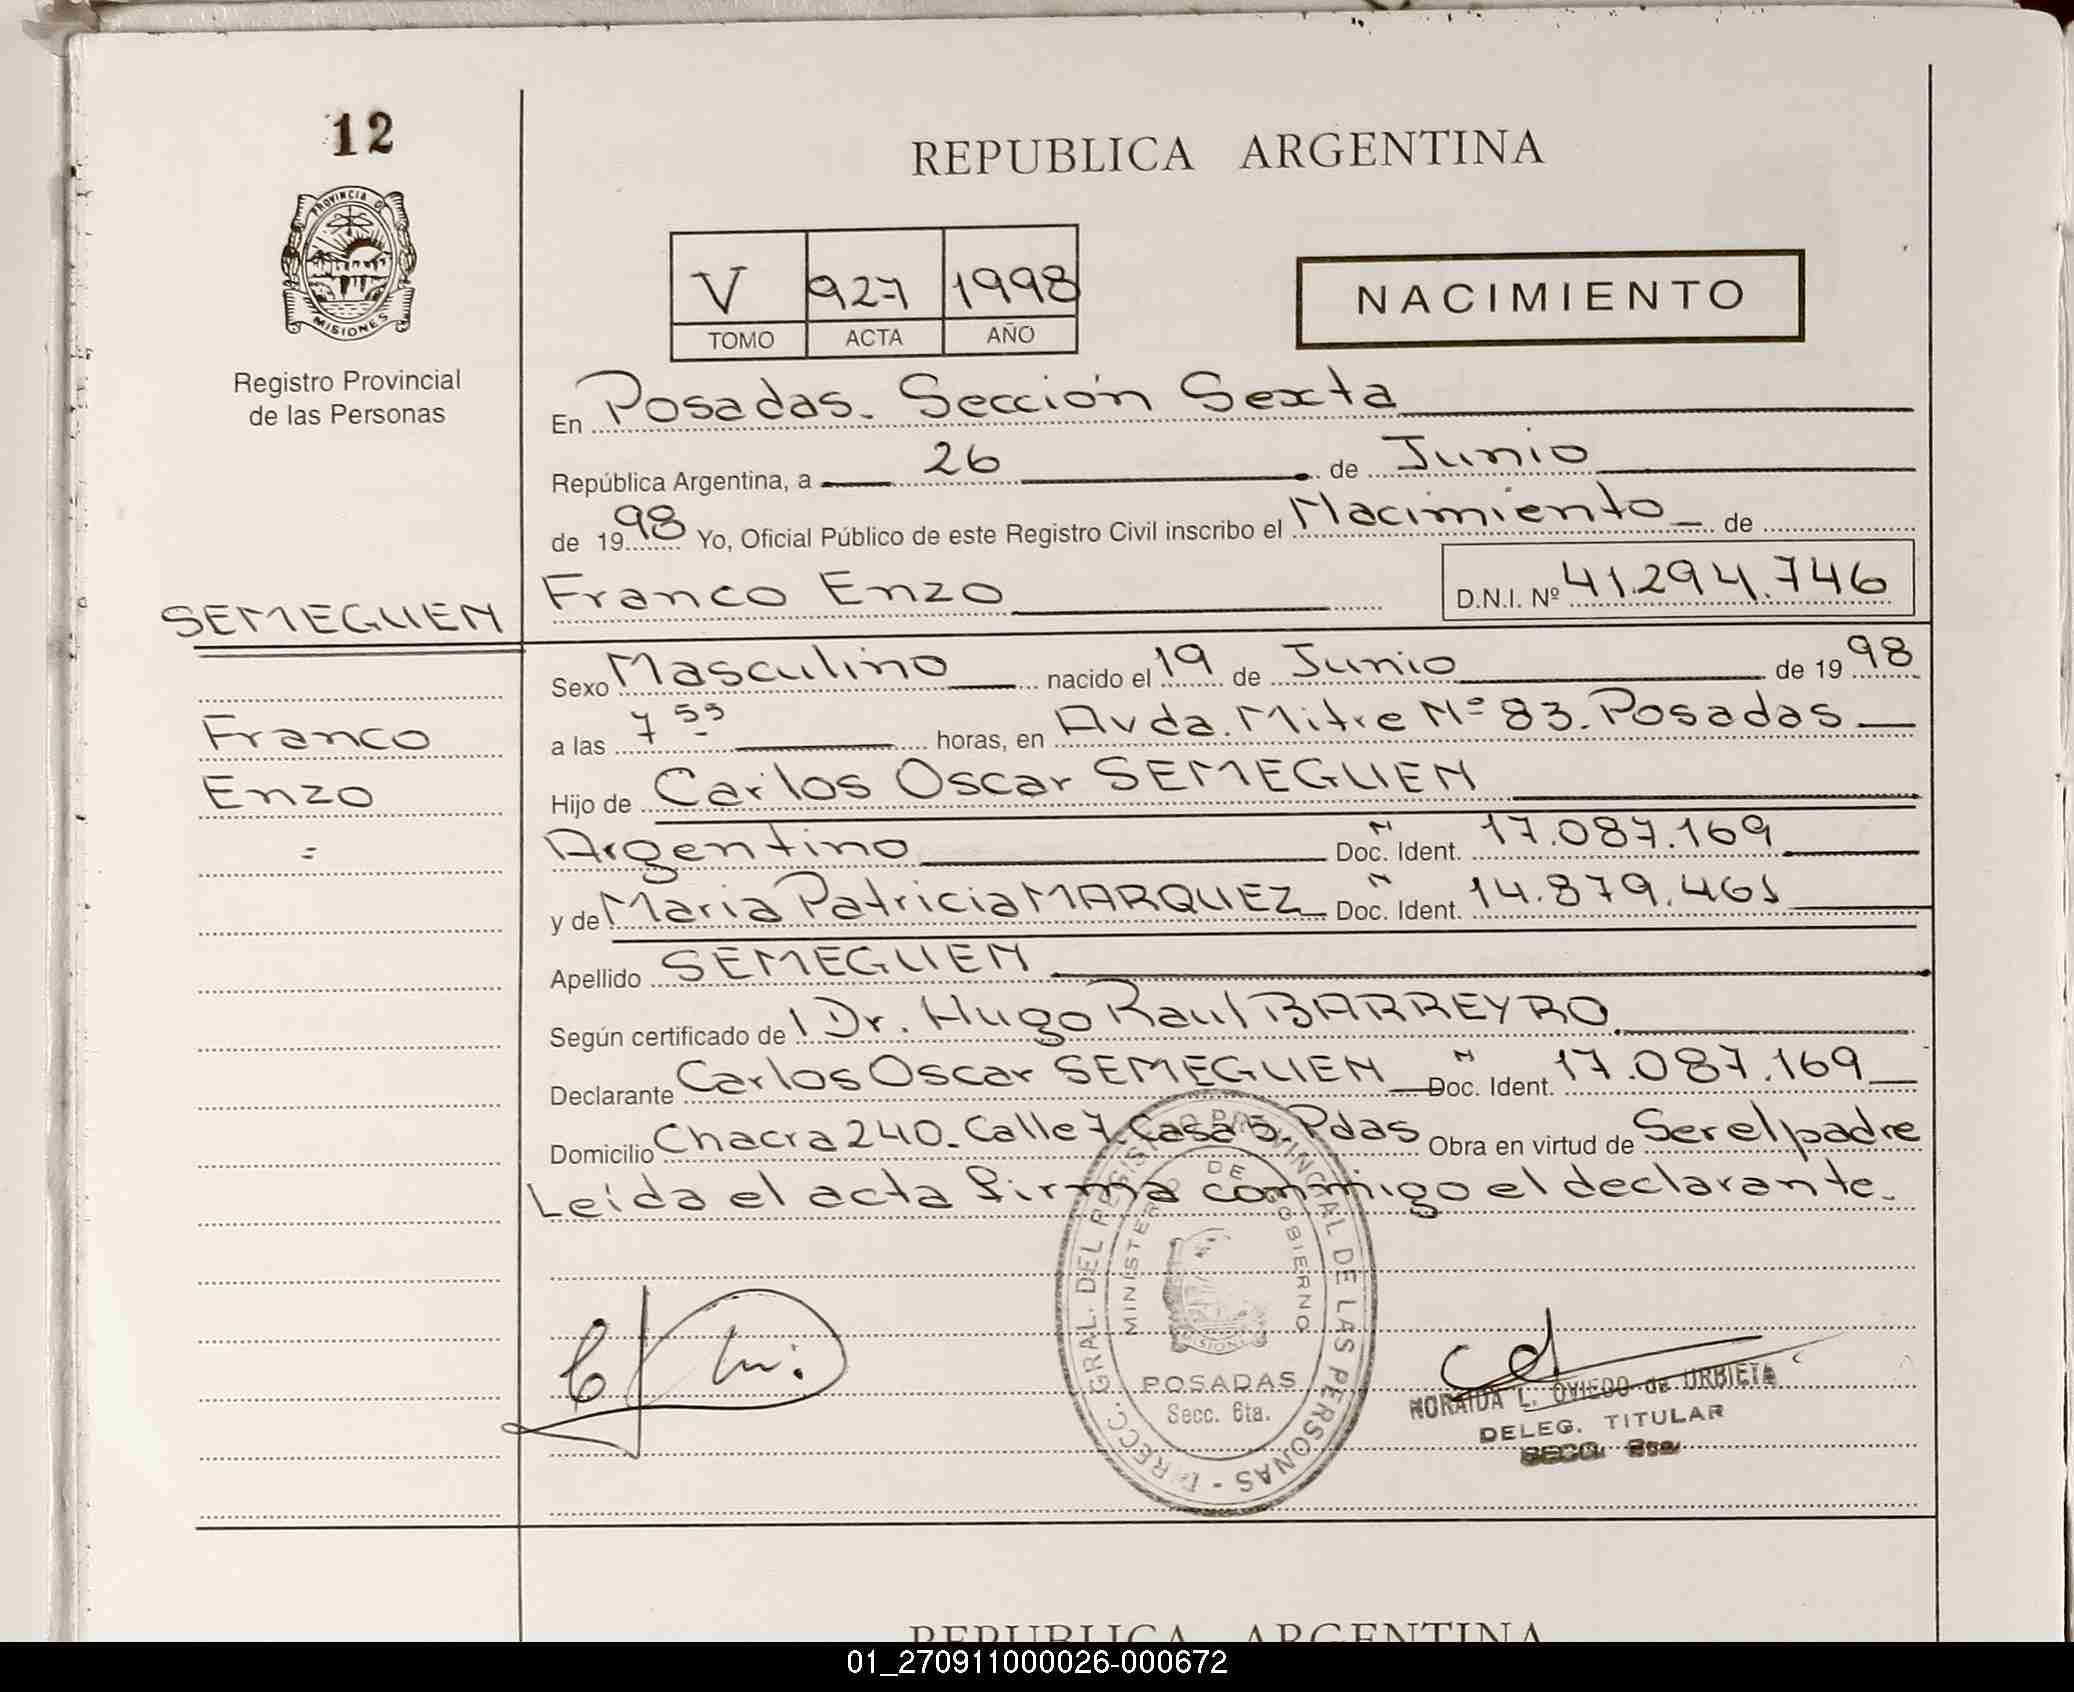 12
REPUBLICA ARGENTINA
PROVINCIA DE
MISIONES
Registro Provincial
de las Personas
V 927 1998
TOMO ACTA AÑO
NACIMIENTO
En Posadas. Sección Sexta
República Argentina, a 26 de Junio
de 1998 Yo, Oficial Público de este Registro Civil inscribo el Nacimiento de
SEMEGUEN Franco Enzo D.N.I. Nº 41.294.746
Sexo Masculino nacido el 19 de Junio de 1998
Franco a las 7 55 horas, en Avda. Mitre Nº 83. Posadas
Enzo Hijo de Carlos Oscar SEMEGUEN
Argentino Doc. Ident. 17.087.169
y de Maria Patricia MARQUEZ Doc. Ident. 14.879.461
Apellido SEMEGUEN
Según certificado de l Dr. Hugo Raul BARREYRO
Declarante Carlos Oscar SEMEGUEN Doc. Ident. 17.087.169
Domicilio Chacra 240. Calle 7. Casa 5. Pdas Obra en virtud de Ser el padre
Leída el acta firma conmigo el declarante.
DIRECC. GRAL. DEL REGISTRO PROVINCIAL DE LAS PERSONAS -
MINISTERIO DE GOBIERNO
POSADAS
Secc. 6ta.
NORAIDA L. OVIEDO de URBIETA
DELEG. TITULAR
SECC. 6ta.
REPUBLICA ARGENTINA
01_270911000026-000672